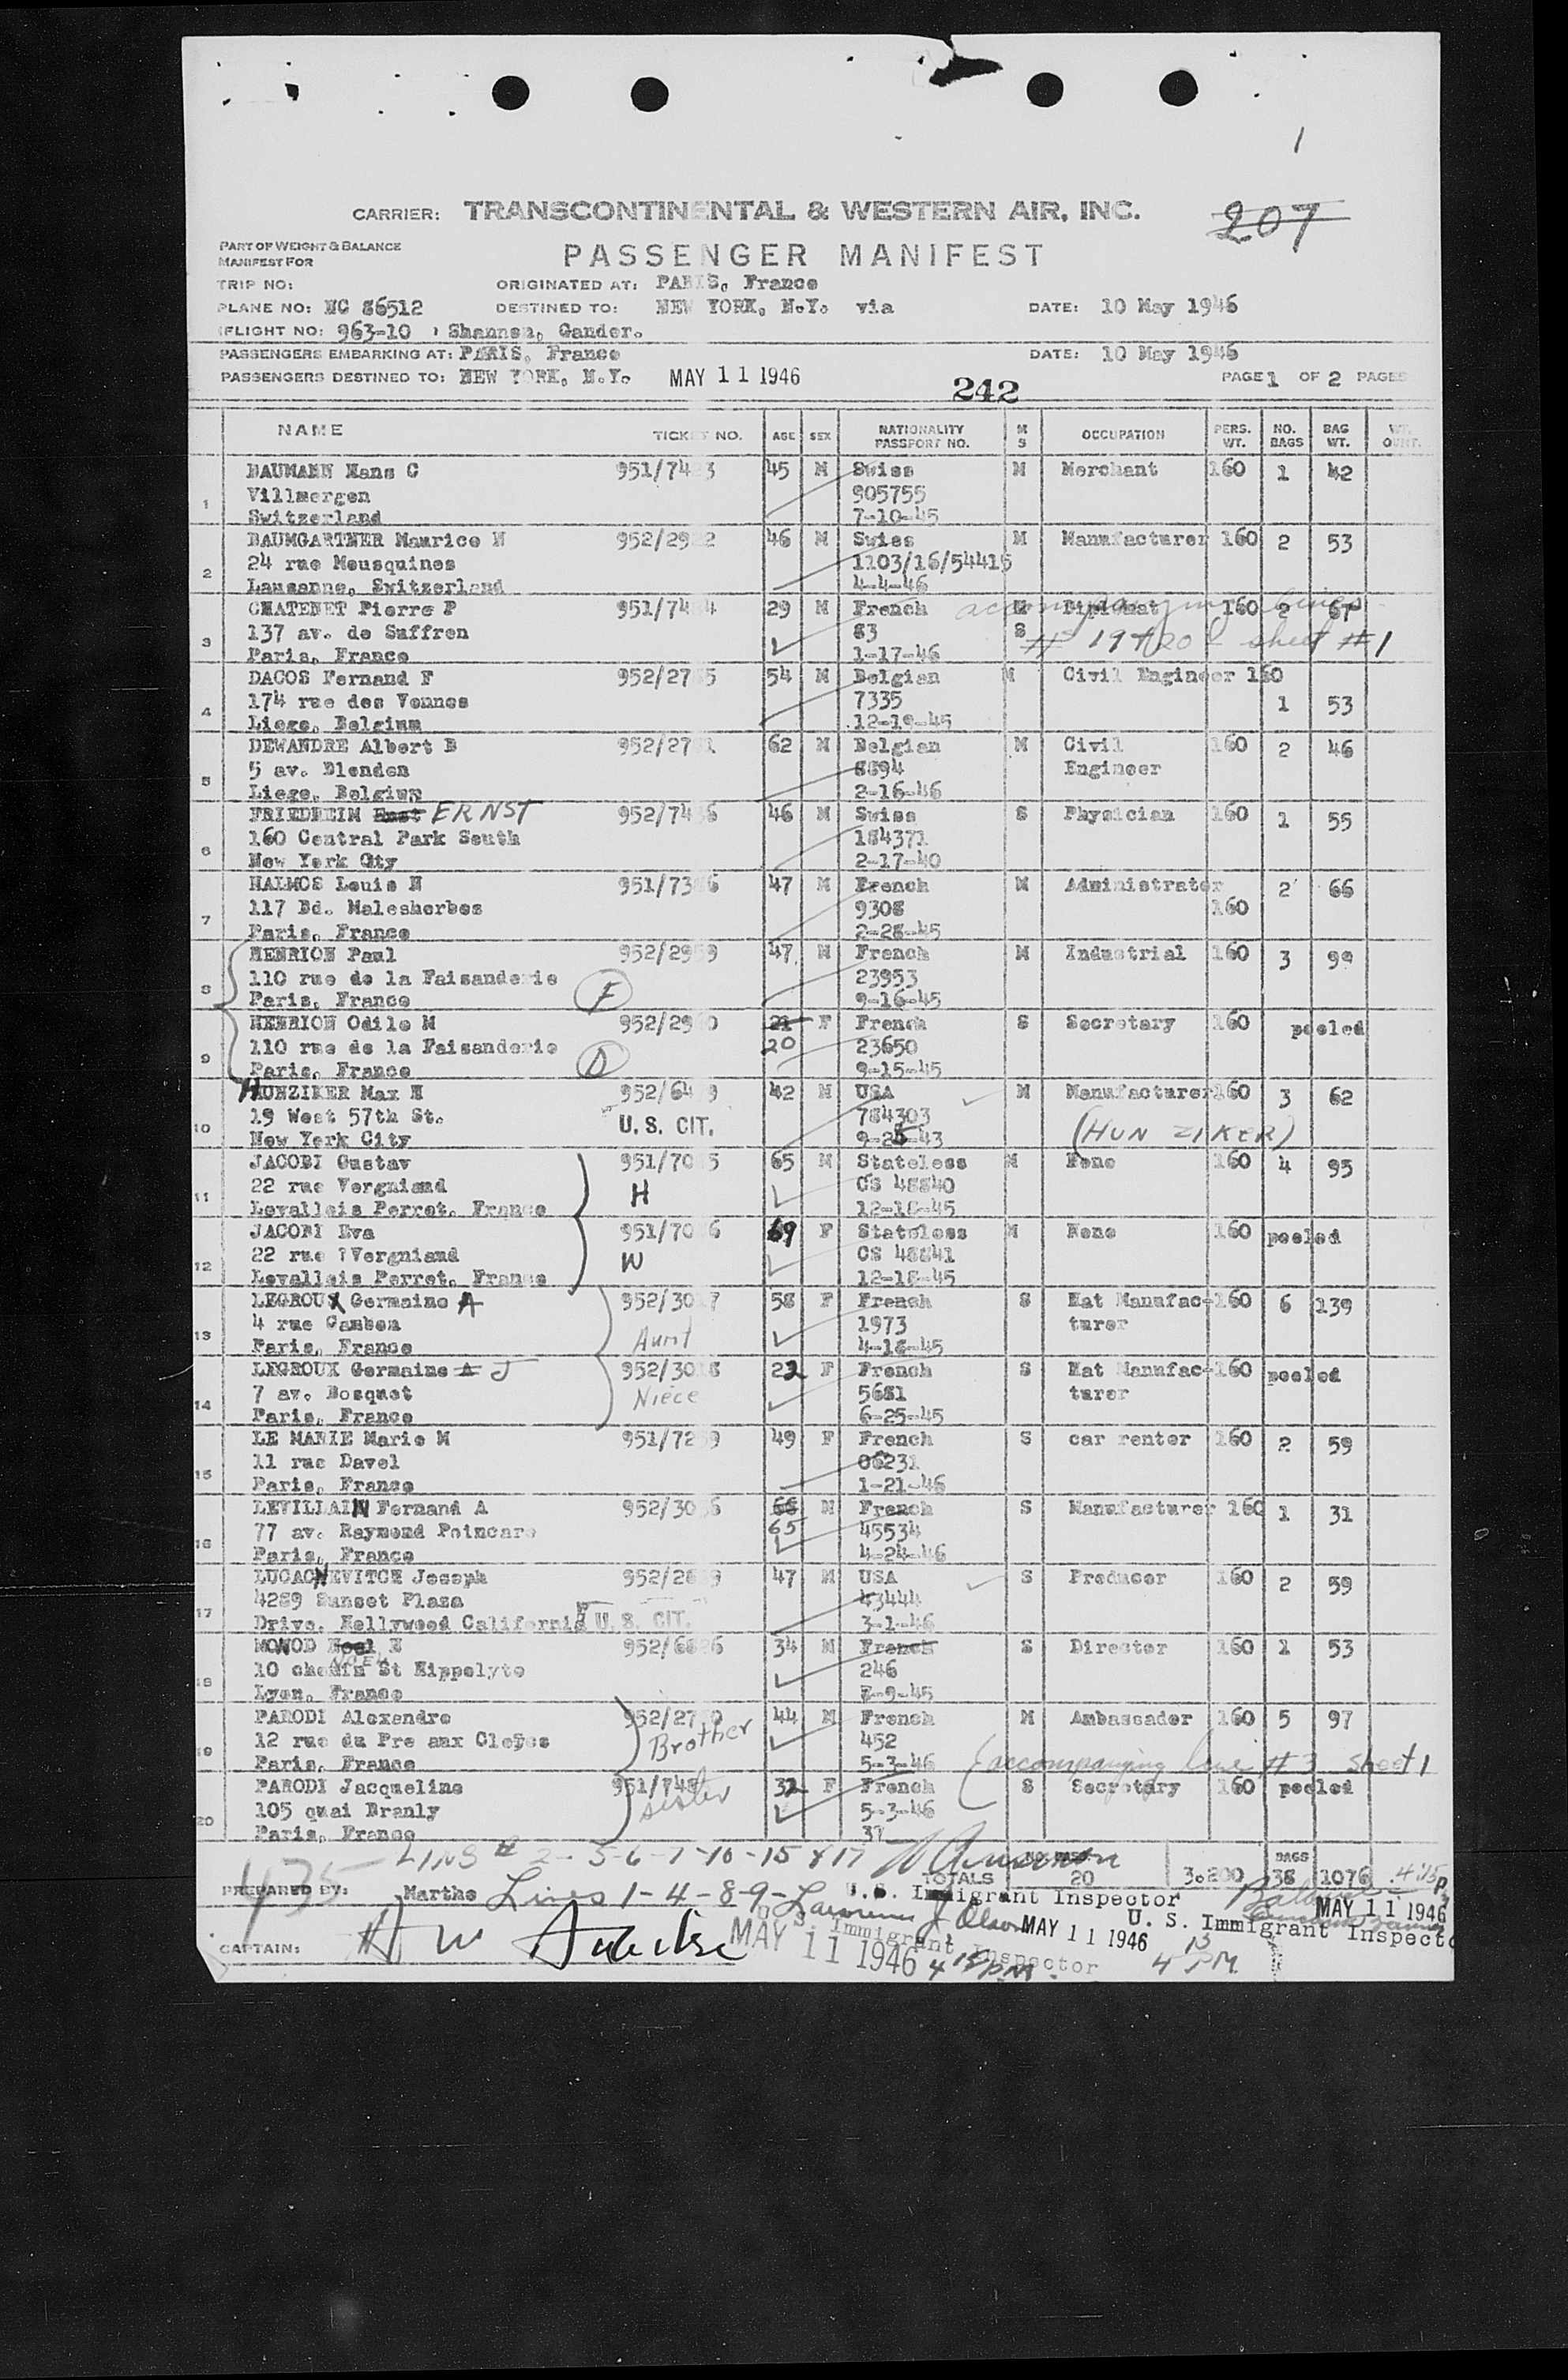 1
CARRIER: TRANSCONTINENTAL & WESTERN AIR, INC.
207
PART OF WEIGHT & BALANCE
MANIFEST FOR
PASSENGER MANIFEST
TRIP NO: ORIGINATED AT: PARIS, France
PLANE NO: NC 86512 DESTINED TO: NEW YORK, N.Y. via DATE: 10 May 1946
FLIGHT NO: 963-10 Shannon, Gander.
PASSENGERS EMBARKING AT: PARIS, France DATE: 10 May 1946
PASSENGERS DESTINED TO: NEW YORK, N.Y. MAY 11 1946 242 PAGE 1 OF 2 PAGES
NAME TICKET NO. AGE SEX NATIONALITY PASSPORT NO. M S OCCUPATION PERS. WT. NO. BAGS BAG WT.
BAUMANN Hans C 951/74 3 45 M Swiss M Merchant 160 1 42
Villmergen 905755
1 Switzerland 7-10-45
BAUMGARTNER Maurice W 952/29 2 46 M Swiss M Manufacturer 160 2 53
24 rue Mousquines 1103/16/54415
2 Lausanne, Switzerland 4-4-46
CHATENET Pierre P 951/74 4 29 M French M Diplomat 160 2 67
accompanying lines
137 av. de Suffren 83 S # 19 & 20 sheet #1
3 Paris, France 1-17-46
DACOS Fernand F 952/27 5 54 M Belgian M Civil Engineer 160
174 rue des Vennes 7335 1 53
4 Liege, Belgium 12-19-45
DEWANDRE Albert B 952/27 1 62 M Belgian M Civil 160 2 46
5 av. Blonden 8894 Engineer
5 Liege, Belgium 2-16-46
FRIEDHEIM ERNST 952/74 6 46 M Swiss S Physician 160 1 55
160 Central Park South 184371
6 New York City 2-17-40
HALMOS Louis N 951/73 6 47 M French M Administrator 2 66
117 Bd. Malesherbes 9308 160
7 Paris, France 2-28-45
HENRION Paul 952/29 9 47 M French M Industrial 160 3 99
110 rue de la Faisanderie F 23953
8 Paris, France 9-16-45
HENRION Odile M 952/29 0 21 F French S Secretary 160 pooled
110 rue de la Faisanderie 20 23650
9 Paris, France D 9-15-45
HUNZIKER Max H 952/64 9 42 M USA M Manufacturer 160 3 62
19 West 57th St. U.S. CIT. 784303
10 New York City 9-25-43 (HUN ZIKER)
JACOBI Gustav 951/70 5 65 M Stateless M None 160 4 95
22 rue Vergniaud H CS 48840
11 Levallois Perret, France 12-18-45
JACOBI Eva 951/70 6 69 F Stateless M None 160 pooled
22 rue Vergniaud W CS 48841
12 Levallois Perret, France 12-18-45
LEGROUX Germaine A 952/30 7 58 F French S Hat Manufac- 160 6 139
4 rue Cambon Aunt 1973 turer
13 Paris, France 4-18-45
LEGROUX Germaine A J 952/30 8 22 F French S Hat Manufac- 160 pooled
7 av. Bosquet Niece 5681 turer
14 Paris, France 6-25-45
LE MARIE Marie M 951/72 9 49 F French S car renter 160 2 59
11 rue Davel 08231
15 Paris, France 1-21-46
LEVILLAIN Fernand A 952/30 6 66 M French S Manufacturer 160 1 31
77 av. Raymond Poincare 65 45534
16 Paris, France 4-24-46
LUCACHEVITCH Joseph 952/28 9 47 M USA S Producer 160 2 59
4289 Sunset Plaza 43444
17 Drive, Hollywood California U.S. CIT. 3-1-46
MONOD Noel N 952/68 6 34 M French S Director 160 1 53
NOEL
10 chemin St Hippolyte 246
18 Lyon, France -9-45
PARODI Alexandre 952/27 0 44 M French M Ambassador 160 5 97
12 rue du Pre aux Clercs Brother 452
19 Paris, France 5-3-46 (accompanying line #3 sheet 1
PARODI Jacqueline 951/748 32 F French S Secretary 160 pooled
105 quai Branly sister 5-3-46
20 Paris, France 37
LINS # 2 - 5-6-7-10-15 & 17
TOTALS 20 3.200 BAGS 38 1076
435
PREPARED BY: Marthe Lines 1-4-8-9- U.S. Immigrant Inspector
Lawrence J Olson MAY 11 1946 U. S. Immigrant Inspector MAY 11 1946
CAPTAIN: MAY 11 1946 U. S. Immigrant Inspector 4 15 PM 4 15 PM